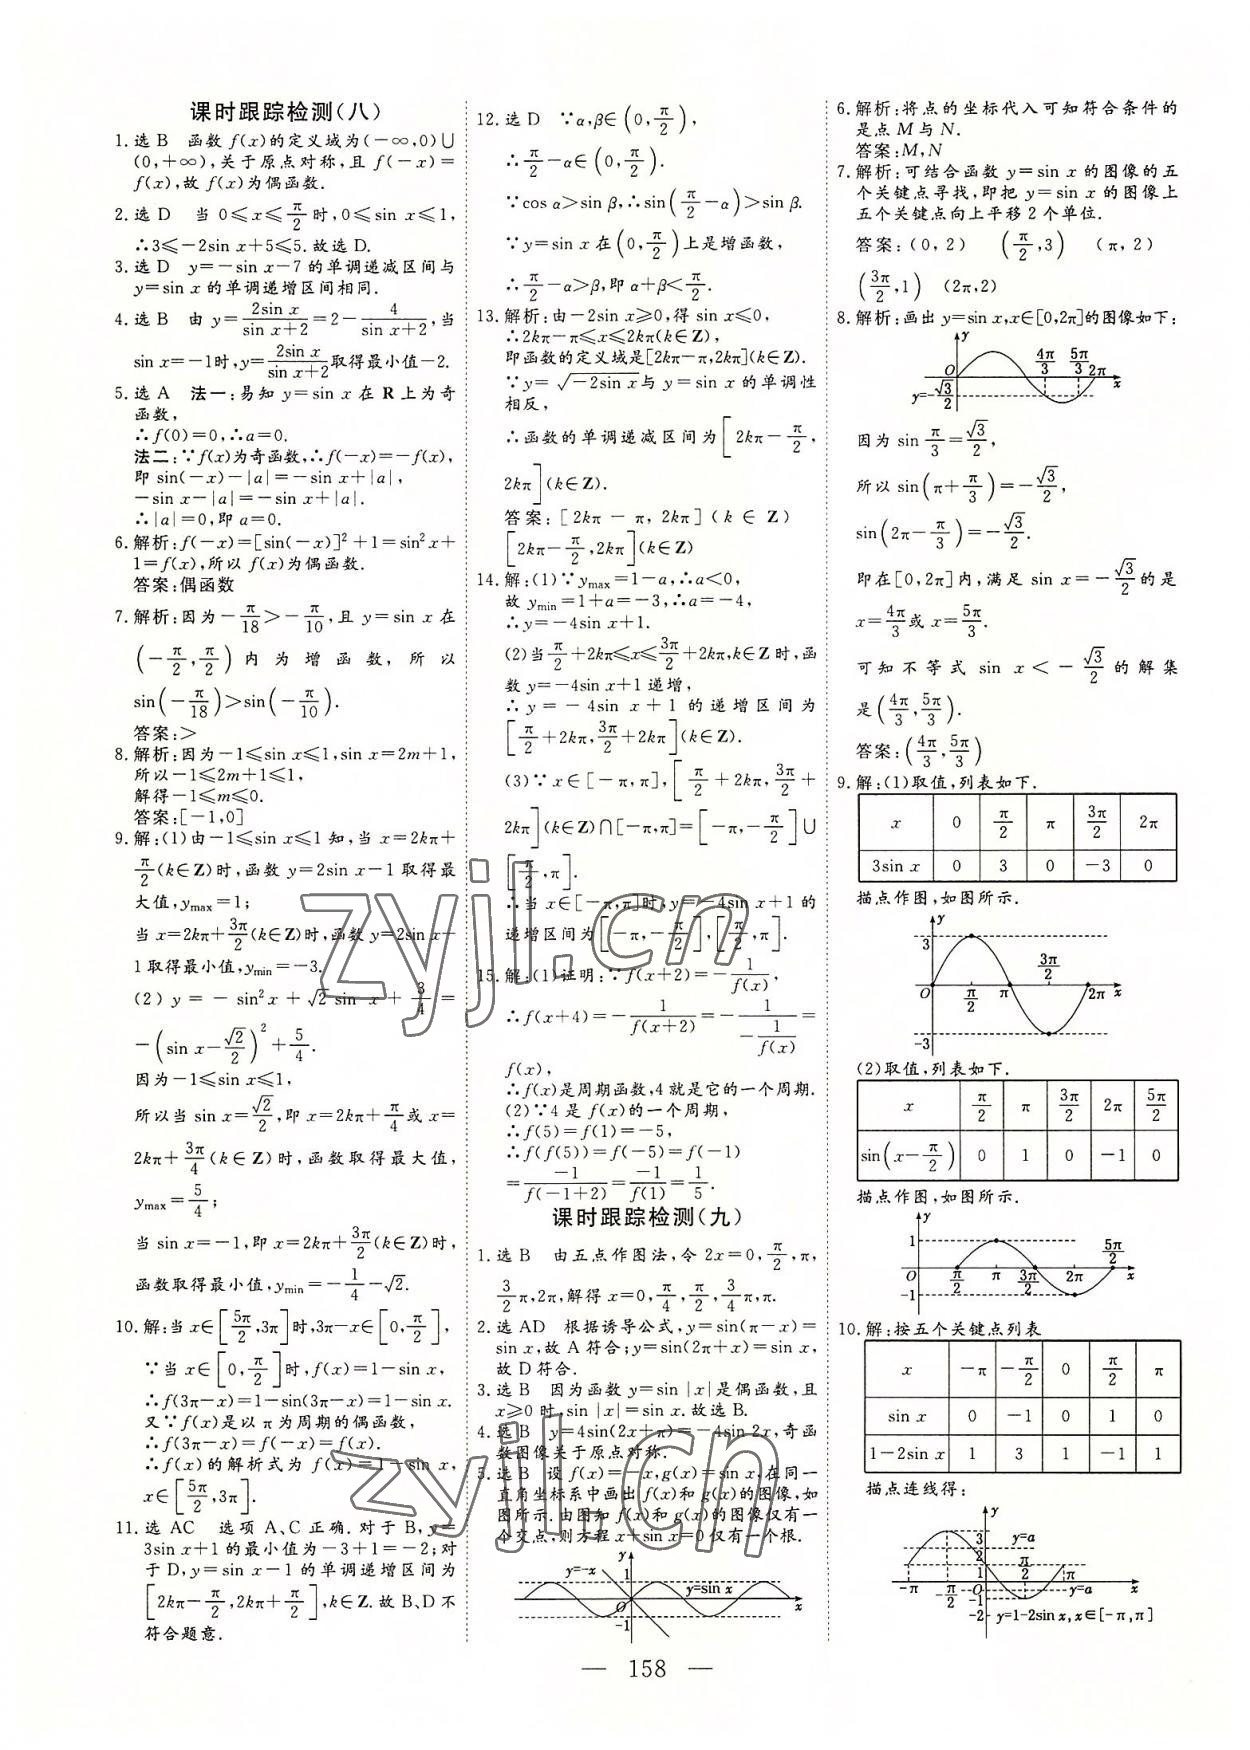 课时跟踪检测(八)
1.选 B 函数 f(x)的定义域为(-∞,0)∪
(0,+∞),关于原点对称,且 f(-x)=
f(x),故 f(x)为偶函数.
2.选 D 当 0≤x≤π/2时,0≤sin x≤1,
∴3≤-2sin x+5≤5.故选 D.
3.选 D y=-sin x-7 的单调递减区间与
y=sin x 的单调递增区间相同.
4.选 B 由 y=2sin x/(sin x+2)=2-4/(sin x+2),当
sin x=-1时,y=2sin x/(sin x+2)取得最小值-2.
5.选 A 法一:易知 y=sin x 在 R 上为奇
函数,
∴f(0)=0,∴a=0.
法二:∵f(x)为奇函数,∴f(-x)=-f(x),
即 sin(-x)-|a|=-sin x+|a|,
-sin x-|a|=-sin x+|a|.
∴|a|=0,即 a=0.
6.解析:f(-x)=[sin(-x)]²+1=sin²x+
1=f(x),所以 f(x)为偶函数.
答案:偶函数
7.解析:因为-π/18>-π/10,且 y=sin x 在
(-π/2,π/2)内为增函数,所以
sin(-π/18)>sin(-π/10).
答案:>
8.解析:因为-1≤sin x≤1,sin x=2m+1,
所以-1≤2m+1≤1,
解得-1≤m≤0.
答案:[-1,0]
9.解:(1)由-1≤sin x≤1 知,当 x=2kπ+
π/2(k∈Z)时,函数 y=2sin x-1 取得最
大值,ymax=1;
当 x=2kπ+3π/2(k∈Z)时,函数 y=2sin x-
1 取得最小值,ymin=-3.
(2) y=-sin²x+√2sin x+3/4=
-(sin x-√2/2)²+5/4.
因为-1≤sin x≤1,
所以当 sin x=√2/2,即 x=2kπ+π/4或 x=
2kπ+3π/4(k∈Z)时,函数取得最大值,
ymax=5/4;
当 sin x=-1,即 x=2kπ+3π/2(k∈Z)时,
函数取得最小值,ymin=-1/4-√2.
10.解:当 x∈[5π/2,3π]时,3π-x∈[0,π/2],
∵当 x∈[0,π/2]时,f(x)=1-sin x,
∴f(3π-x)=1-sin(3π-x)=1-sin x.
又∵f(x)是以 π 为周期的偶函数,
∴f(3π-x)=f(-x)=f(x).
∴f(x)的解析式为 f(x)=1-sin x,
x∈[5π/2,3π].
11.选 AC 选项 A、C 正确.对于 B,y=
3sin x+1 的最小值为-3+1=-2;对
于 D,y=sin x-1 的单调递增区间为
[2kπ-π/2,2kπ+π/2],k∈Z.故 B、D 不
符合题意.
12.选 D ∵α,β∈(0,π/2),
∴π/2-α∈(0,π/2).
∵cos α>sin β,∴sin(π/2-α)>sin β.
∵y=sin x 在(0,π/2)上是增函数,
∴π/2-α>β,即 α+β<π/2.
13.解析:由-2sin x≥0,得 sin x≤0,
∴2kπ-π≤x≤2kπ(k∈Z),
即函数的定义域是[2kπ-π,2kπ](k∈Z).
∵y=√-2sin x与 y=sin x 的单调性
相反,
∴函数的单调递减区间为[2kπ-π/2,
2kπ](k∈Z).
答案:[2kπ-π,2kπ](k∈Z)
[2kπ-π/2,2kπ](k∈Z)
14.解:(1)∵ymax=1-a,∴a<0,
故 ymin=1+a=-3,∴a=-4,
∴y=-4sin x+1.
(2)当π/2+2kπ≤x≤3π/2+2kπ,k∈Z时,函
数 y=-4sin x+1 递增,
∴y=-4sin x+1 的递增区间为
[π/2+2kπ,3π/2+2kπ](k∈Z).
(3)∵x∈[-π,π],[π/2+2kπ,3π/2+
2kπ](k∈Z)∩[-π,π]=[-π,-π/2]∪
[π/2,π].
∴当 x∈[-π,π]时,y=-4sin x+1 的
递增区间为[-π,-π/2],[π/2,π].
15.解:(1)证明:∵f(x+2)=-1/f(x),
∴f(x+4)=-1/f(x+2)=-1/(-1/f(x))=
f(x),
∴f(x)是周期函数,4 就是它的一个周期.
(2)∵4 是 f(x)的一个周期,
∴f(5)=f(1)=-5,
∴f(f(5))=f(-5)=f(-1)
=-1/f(-1+2)=-1/f(1)=1/5.
课时跟踪检测(九)
1.选 B 由五点作图法,令 2x=0,π/2,π,
3/2π,2π,解得 x=0,π/4,π/2,3/4π,π.
2.选 AD 根据诱导公式,y=sin(π-x)=
sin x,故 A 符合;y=sin(2π+x)=sin x,
故 D 符合.
3.选 B 因为函数 y=sin |x|是偶函数,且
x≥0 时,sin |x|=sin x.故选 B.
4.选 B y=4sin(2x+π)=-4sin 2x,奇函
数图像关于原点对称.
5.选 B 设 f(x)=-x,g(x)=sin x,在同一
直角坐标系中画出 f(x)和 g(x)的图像,如
图所示.由图知 f(x)和 g(x)的图像仅有一
个交点,则方程 x+sin x=0 仅有一个根.
y=-x y 1 y=sin x O x -1
6.解析:将点的坐标代入可知符合条件的
是点 M 与 N.
答案:M,N
7.解析:可结合函数 y=sin x 的图像的五
个关键点寻找,即把 y=sin x 的图像上
五个关键点向上平移 2 个单位.
答案:(0,2) (π/2,3) (π,2)
(3π/2,1) (2π,2)
8.解析:画出 y=sin x,x∈[0,2π]的图像如下:
y 4π/3 5π/3 O 2π x y=-√3/2
因为 sin π/3=√3/2,
所以 sin(π+π/3)=-√3/2,
sin(2π-π/3)=-√3/2.
即在[0,2π]内,满足 sin x=-√3/2的是
x=4π/3或 x=5π/3.
可知不等式 sin x<-√3/2的解集
是(4π/3,5π/3).
答案:(4π/3,5π/3)
9.解:(1)取值,列表如下.
x 0 π/2 π 3π/2 2π
3sin x 0 3 0 -3 0
描点作图,如图所示.
y 3 3π/2 O π/2 π 2π x -3
(2)取值,列表如下.
x π/2 π 3π/2 2π 5π/2
sin(x-π/2) 0 1 0 -1 0
描点作图,如图所示.
y 1 5π/2 O π/2 π 3π/2 2π x -1
10.解:按五个关键点列表
x -π -π/2 0 π/2 π
sin x 0 -1 0 1 0
1-2sin x 1 3 1 -1 1
描点连线得:
y 3 y=a 2 1 π/2 π x -π -π/2 -1 y=a
-2 y=1-2sin x,x∈[-π,π]
— 158 —
zyjl.cn
zyjl.cn